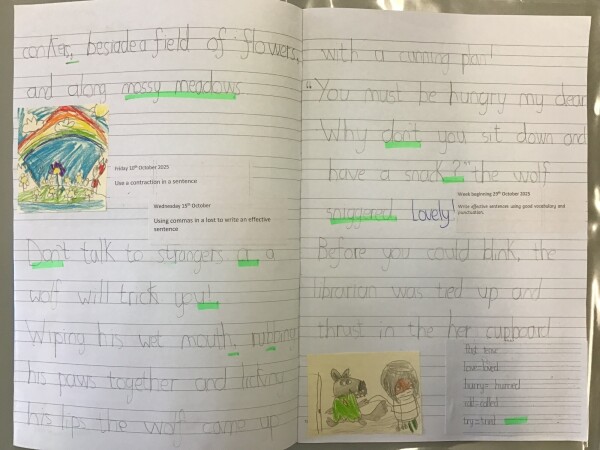 conker, besiade a field of flowers,
and along mossy meadows
Friday 10th October 2025
Use a contraction in a sentence
Wednesday 15th October
Using commas in a lost to write an effective
sentence
Don't talk to strangers or a
wolf will trick you!
Wiping his wet mouth, rubbing
his paws together and licking
his lips the wolf came up
with a cunning plan!
"You must be hungry my dear
Why don't you sit down and
have a snack?" the wolf
Week beginning 29th October 2025
Write effective sentences using good vocabulary and
punctuation.
sniggered. Lovely
Before you could blink, the
librarian was tied up and
thrust in the her cupboard
Past tense
love=loved
hurry= hurried
call=called
try=tried